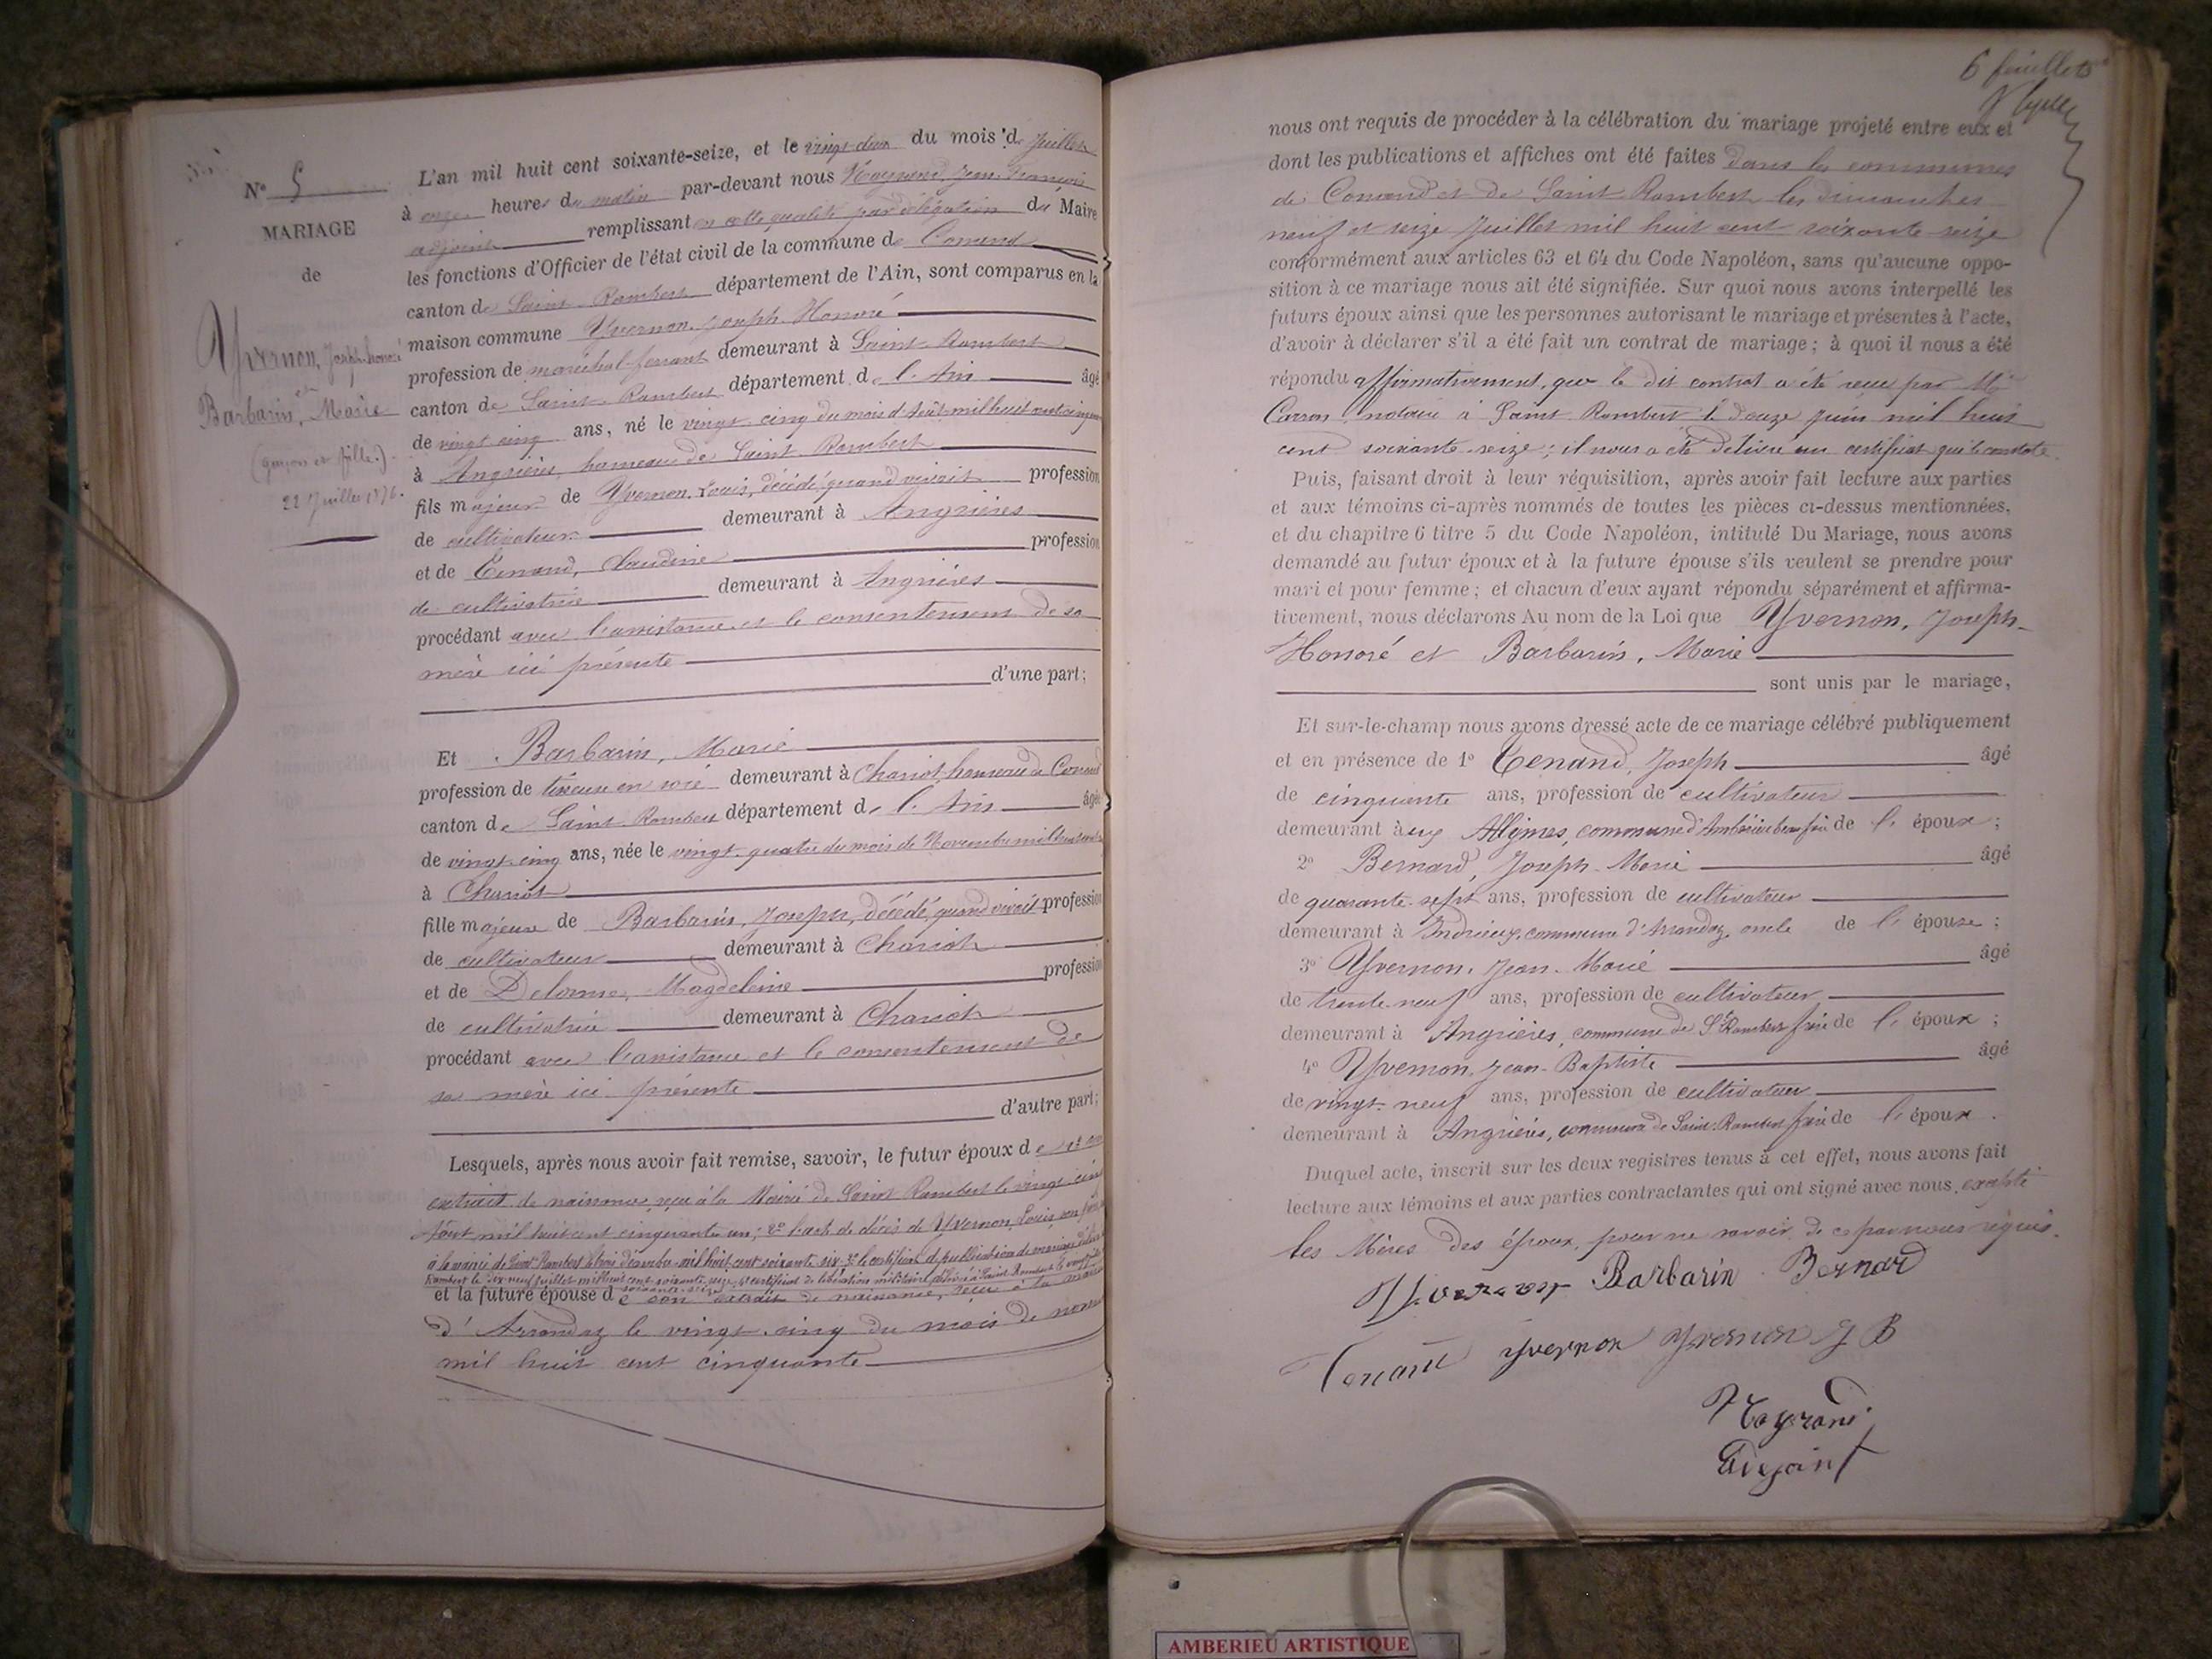 N° 5
MARIAGE
de
Yvernon, Joseph-honoré
et
Barbarin, Marie
(garçon et fille).
22 Juillet 1876.
L'an mil huit cent soixante-seize, et le vingt-deux du mois de Juillet
à onze heures du matin par-devant nous Jean-François
adjoint remplissant en cette qualité par délégation du Maire
les fonctions d'Officier de l'état civil de la commune de Conand
canton de Saint-Rambert département de l'Ain, sont comparus en la
maison commune Yvernon, Joseph-Honoré
profession de maréchal-ferrant demeurant à Saint-Rambert
canton de Saint-Rambert département de l'Ain âgé
de vingt-cinq ans, né le vingt-cinq du mois d'Août mil huit cent
à Angrières, hameau de Saint-Rambert
fils majeur de Yvernon, Louis, décédé, quand vivait profession
de cultivateur demeurant à Angrières
et de Tenand, Claudine profession
de cultivatrice demeurant à Angrières
procédant avec l'assistance et le consentement de sa
mère ici présente
d'une part;
Et Barbarin, Marie
profession de tisseuse en soie demeurant à Charriot, hameau de Conand
canton de Saint-Rambert département de l'Ain âgée
de vingt-cinq ans, née le vingt-quatre du mois de Novembre mil huit cent
à Charriot
fille majeure de Barbarin, Joseph, décédé, quand vivait profession
de cultivateur demeurant à Charriot
et de Delorme, Magdeleine profession
de cultivatrice demeurant à Charriot
procédant avec l'assistance et le consentement de
sa mère ici présente
d'autre part;
Lesquels, après nous avoir fait remise, savoir, le futur époux de 1° son
extrait de naissance, reçu à la Mairie de Saint Rambert le vingt-cinq
Août mil huit cent cinquante un; 2° l'acte de décès de Yvernon, Louis, son père
à la mairie de Saint Rambert le trois décembre mil huit cent soixante six; 3° le certificat de publication de mariage délivré
Rambert le dix-neuf juillet mil huit cent soixante seize, 4° certificat de libération militaire délivré à Saint Rambert le
soixante-seize
et la future épouse de son extrait de naissance, reçu à la mairie
d'Arrandaz le vingt-cinq du mois de
mil huit cent cinquante
6 feuillets
nous ont requis de procéder à la célébration du mariage projeté entre eux et
dont les publications et affiches ont été faites dans les communes
de Conand et de Saint Rambert les dimanches
neuf et seize Juillet mil huit cent soixante seize
conformément aux articles 63 et 64 du Code Napoléon, sans qu'aucune oppo-
sition à ce mariage nous ait été signifiée. Sur quoi nous avons interpellé les
futurs époux ainsi que les personnes autorisant le mariage et présentes à l'acte,
d'avoir à déclarer s'il a été fait un contrat de mariage; à quoi il nous a été
répondu affirmativement, que le dit contrat a été reçu par Me
Carron notaire à Saint Rambert le douze juin mil huit
cent soixante-seize; il nous a été délivré un certificat qui le constate.
Puis, faisant droit à leur réquisition, après avoir fait lecture aux parties
et aux témoins ci-après nommés de toutes les pièces ci-dessus mentionnées,
et du chapitre 6 titre 5 du Code Napoléon, intitulé Du Mariage, nous avons
demandé au futur époux et à la future épouse s'ils veulent se prendre pour
mari et pour femme; et chacun d'eux ayant répondu séparément et affirma-
tivement, nous déclarons Au nom de la Loi que Yvernon, Joseph-
Honoré et Barbarin, Marie
sont unis par le mariage,
Et sur-le-champ nous avons dressé acte de ce mariage célébré publiquement
et en présence de 1° Tenand, Joseph âgé
de cinquante ans, profession de cultivateur
demeurant à aux Allymes, commune d'Ambérieu de l'époux;
2° Bernard, Joseph-Marie âgé
de quarante-sept ans, profession de cultivateur
demeurant à Indrieux, commune d'Arrandaz, oncle de l'épouse;
3° Yvernon, Jean-Marie âgé
de trente-neuf ans, profession de cultivateur
demeurant à Angrières, commune de St Rambert frère de l'époux;
4° Yvernon, Jean-Baptiste âgé
de vingt-neuf ans, profession de cultivateur
demeurant à Angrières, commune de Saint-Rambert frère de l'époux.
Duquel acte, inscrit sur les deux registres tenus à cet effet, nous avons fait
lecture aux témoins et aux parties contractantes qui ont signé avec nous, excepté
les Mères des époux, pour ne savoir, de ce par nous requis.
Yvernon Barbarin Bernard
Tenand Yvernon Yvernon J B
Adejoint
AMBERIEU ARTISTIQUE